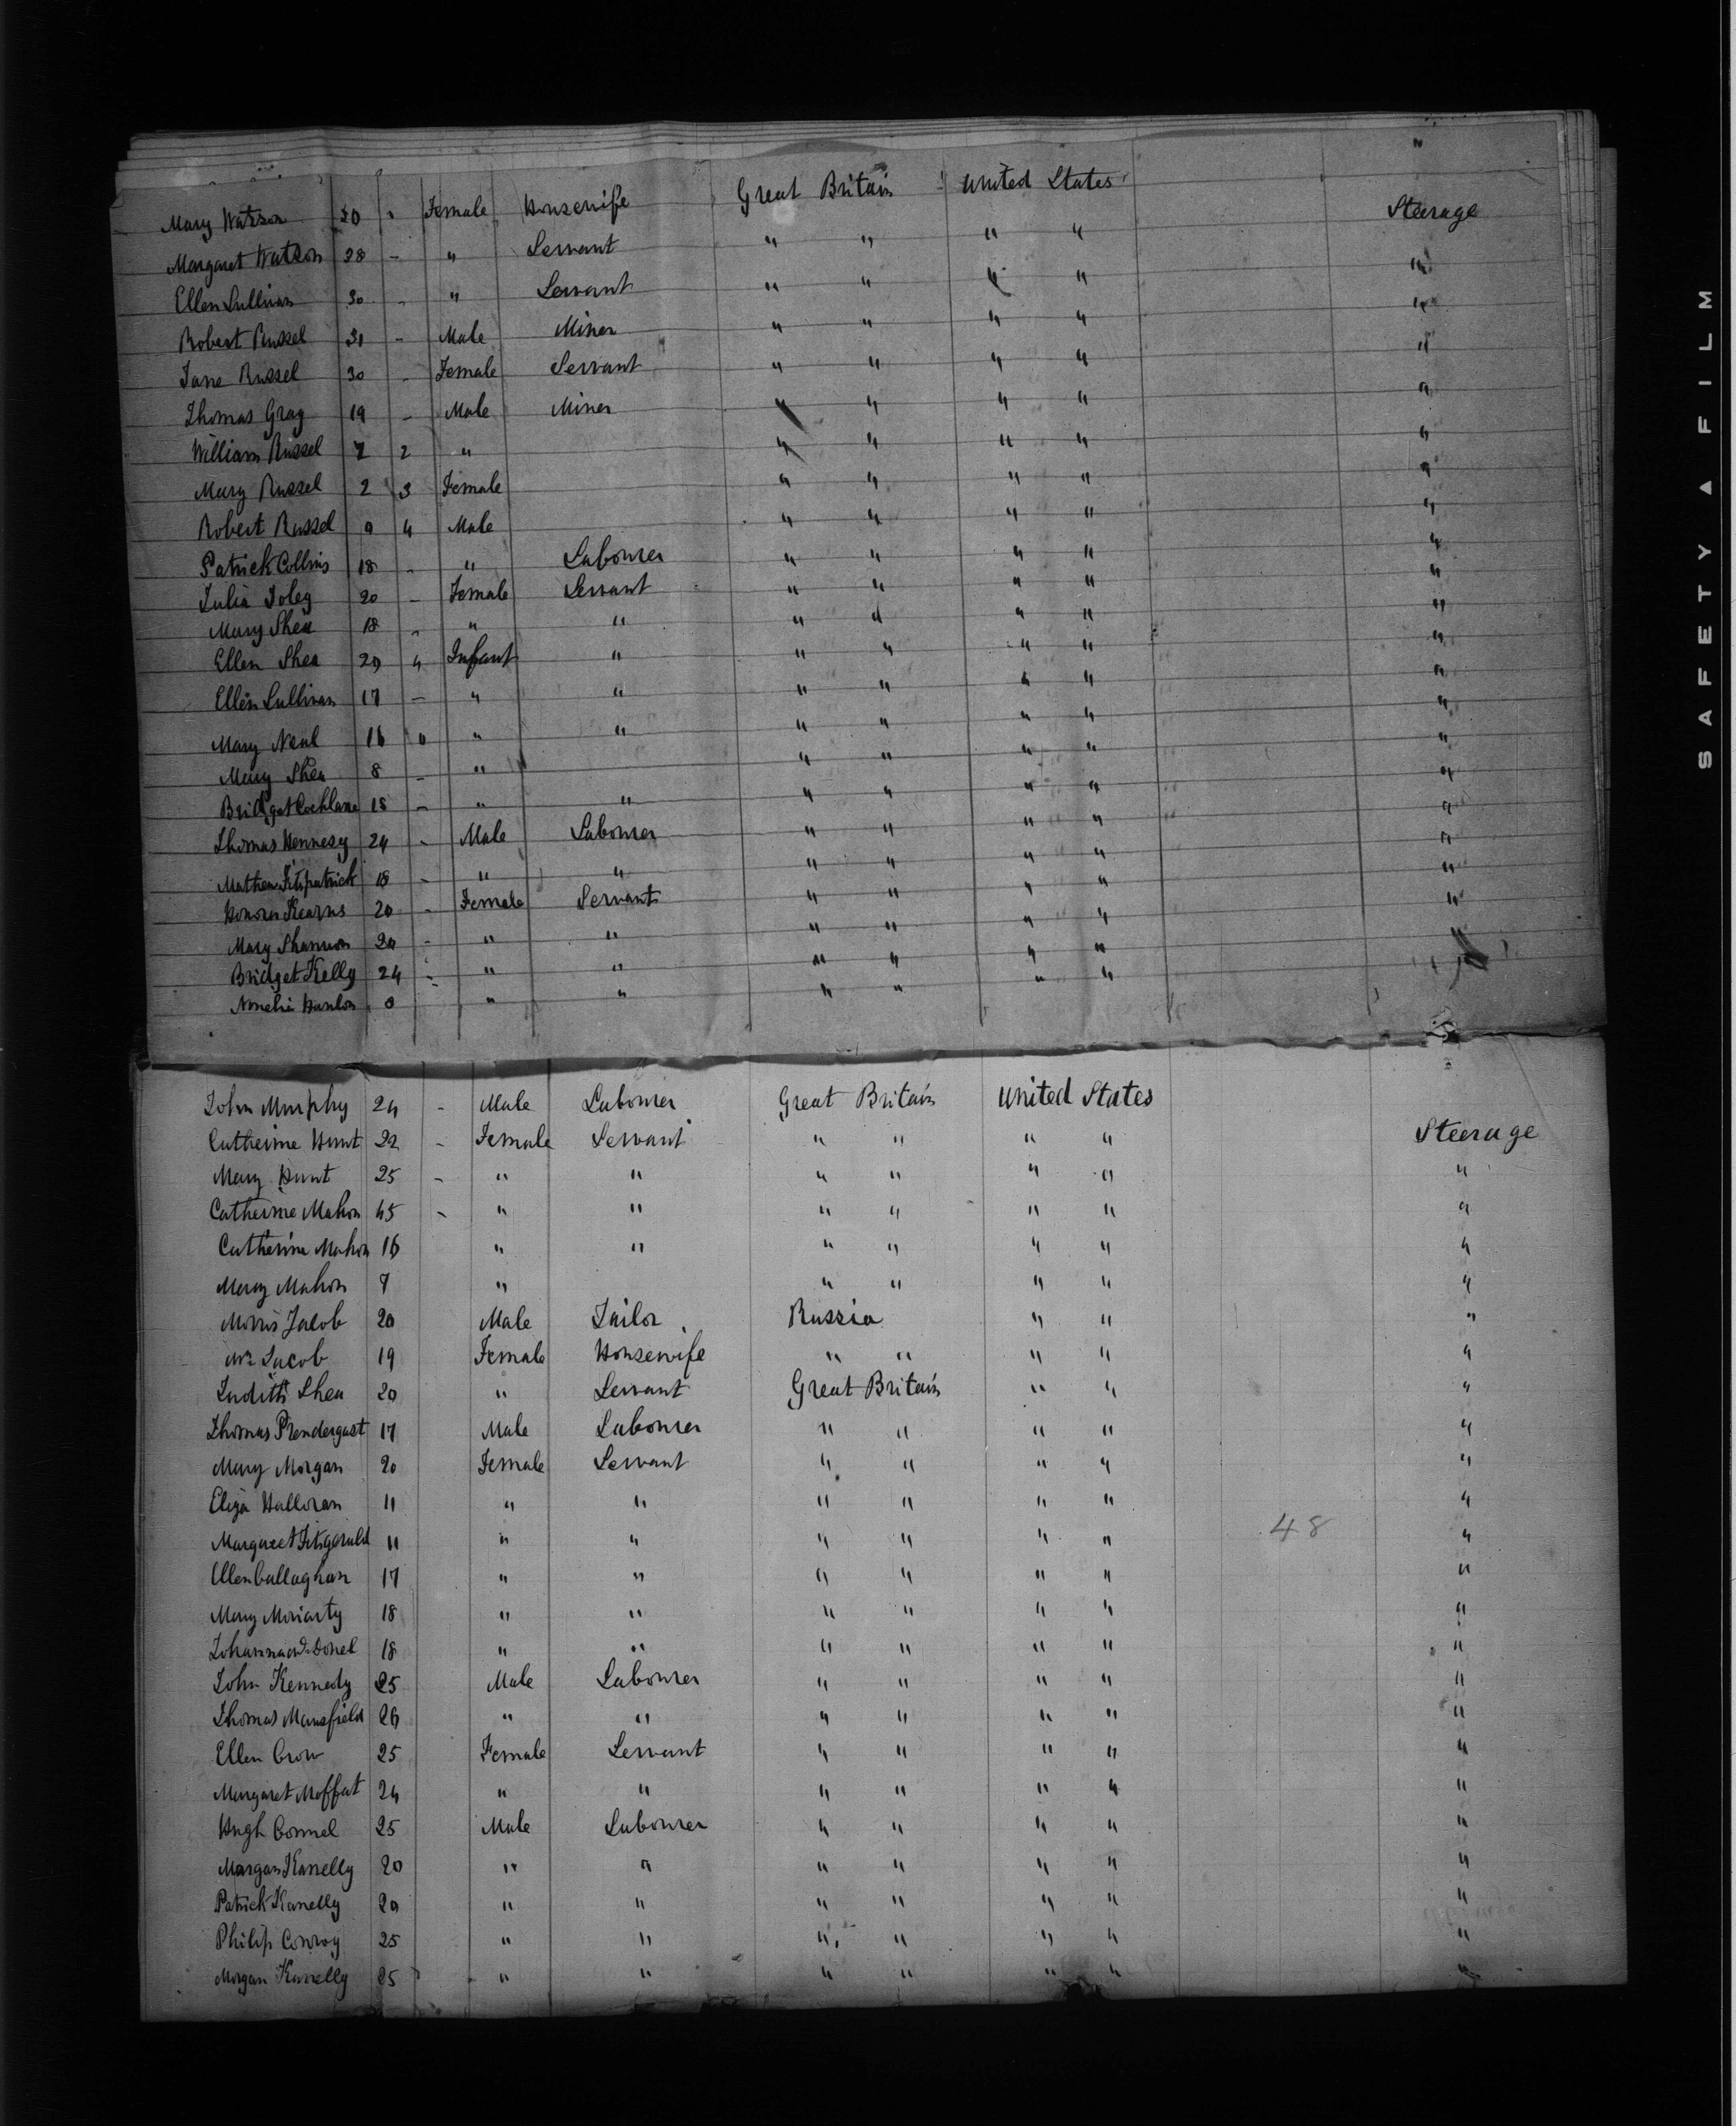 Mary Watson 20 " Female Housewife Great Britain United States Steerage
Margaret Watson 28 - " Servant " " " " "
Ellen Sullivan 30 - " Servant " " " " "
Robert Russel 31 - Male Miner " " " " "
Jane Russel 30 - Female Servant " " " " "
Thomas Gray 19 - Male Miner " " " " "
William Russel 7 2 " " " " " "
Mary Russel 2 3 Female " " " " "
Robert Russel 0 4 Male " " " " "
Patrick Collins 18 - " Labourer " " " " "
Julia Foley 20 - Female Servant " " " " "
Mary Shea 18 - " " " " " " "
Ellen Shea 20 4 Infant " " " " " "
Ellen Sullivan 17 - " " " " " " "
Mary Neal 16 0 " " " " " " "
Mary Shea 8 - " " " " " "
Bridget Cochlane 18 - " " " " " " "
Thomas Hennesy 24 - Male Labourer " " " " "
Mathew Fitzpatrick 18 - " " " " " " "
Honora Kearns 20 - Female Servant " " " " "
Mary Shannon 20 - " " " " " " "
Bridget Kelly 24 - " " " " " "
Hanlon 0 " " " " " "
John Murphy 24 - Male Labourer Great Britain United States
Catherine Hunt 22 - Female Servant " " " " Steerage
Mary Hunt 25 - " " " " " " "
Catherine Mahon 45 - " " " " " " "
Catherine Mahon 16 " " " " " " "
Mary Mahon 7 " " " " " "
Morris Jacob 20 Male Tailor Russia " " "
Mrs Jacob 19 Female Housewife " " " " "
Judith Shea 20 " Servant Great Britain " " "
Thomas Prendergast 17 Male Labourer " " " " "
Mary Morgan 20 Female Servant " " " " "
Eliza Halloran 11 " " " " " " "
Margaret Fitzgerald 11 " " " " " " 48 "
Ellen Callaghan 17 " " " " " " "
Mary Moriarty 18 " " " " " " "
Johanna Donel 18 " " " " " " "
John Kennedy 25 Male Labourer " " " " "
Thomas Mansfield 26 " " " " " " "
Ellen Crow 25 Female Servant " " " " "
Margaret Moffat 24 " " " " " " "
Hugh Connel 25 Male Labourer " " " " "
Morgan Kanelly 20 " " " " " " "
Patrick Kanelly 20 " " " " " " "
Philip Conroy 25 " " " " " " "
Morgan Kanelly 25 " " " " " " "
SAFETY ▲ FILM